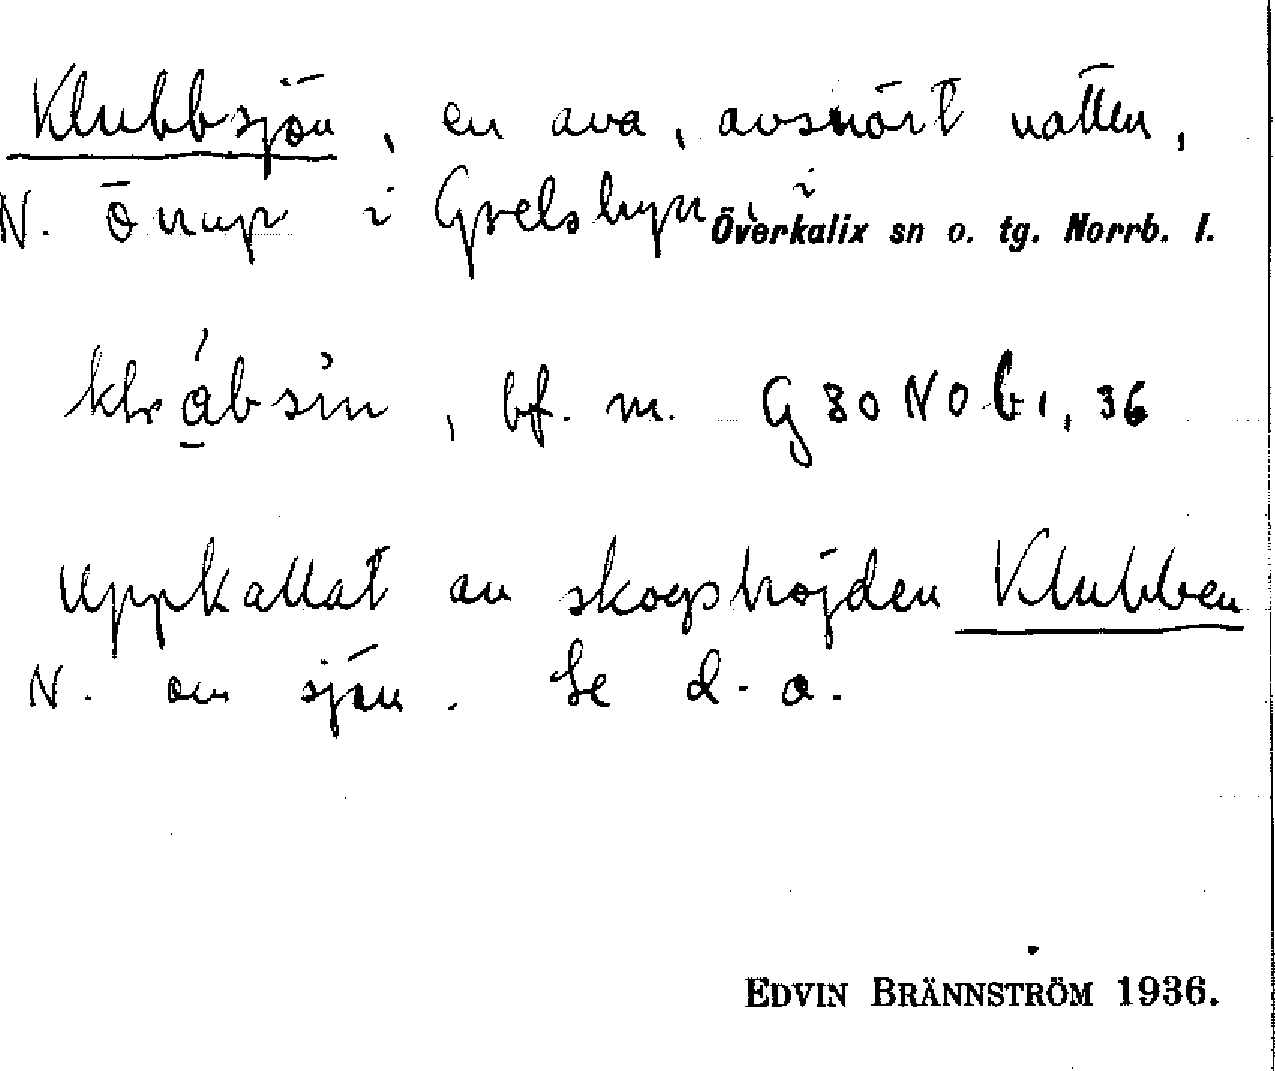 Klubbsjön, en ava, avsnört vatten,
N. Önup i Grelsbyn, i Överkalix sn o. tg. Norrb. l.
bf. m. G 30 NO b1, 36
Uppkallat av skogshöjden Klubben
N. om sjön. Se d. o.
EDVIN BRÄNNSTRÖM 1936.